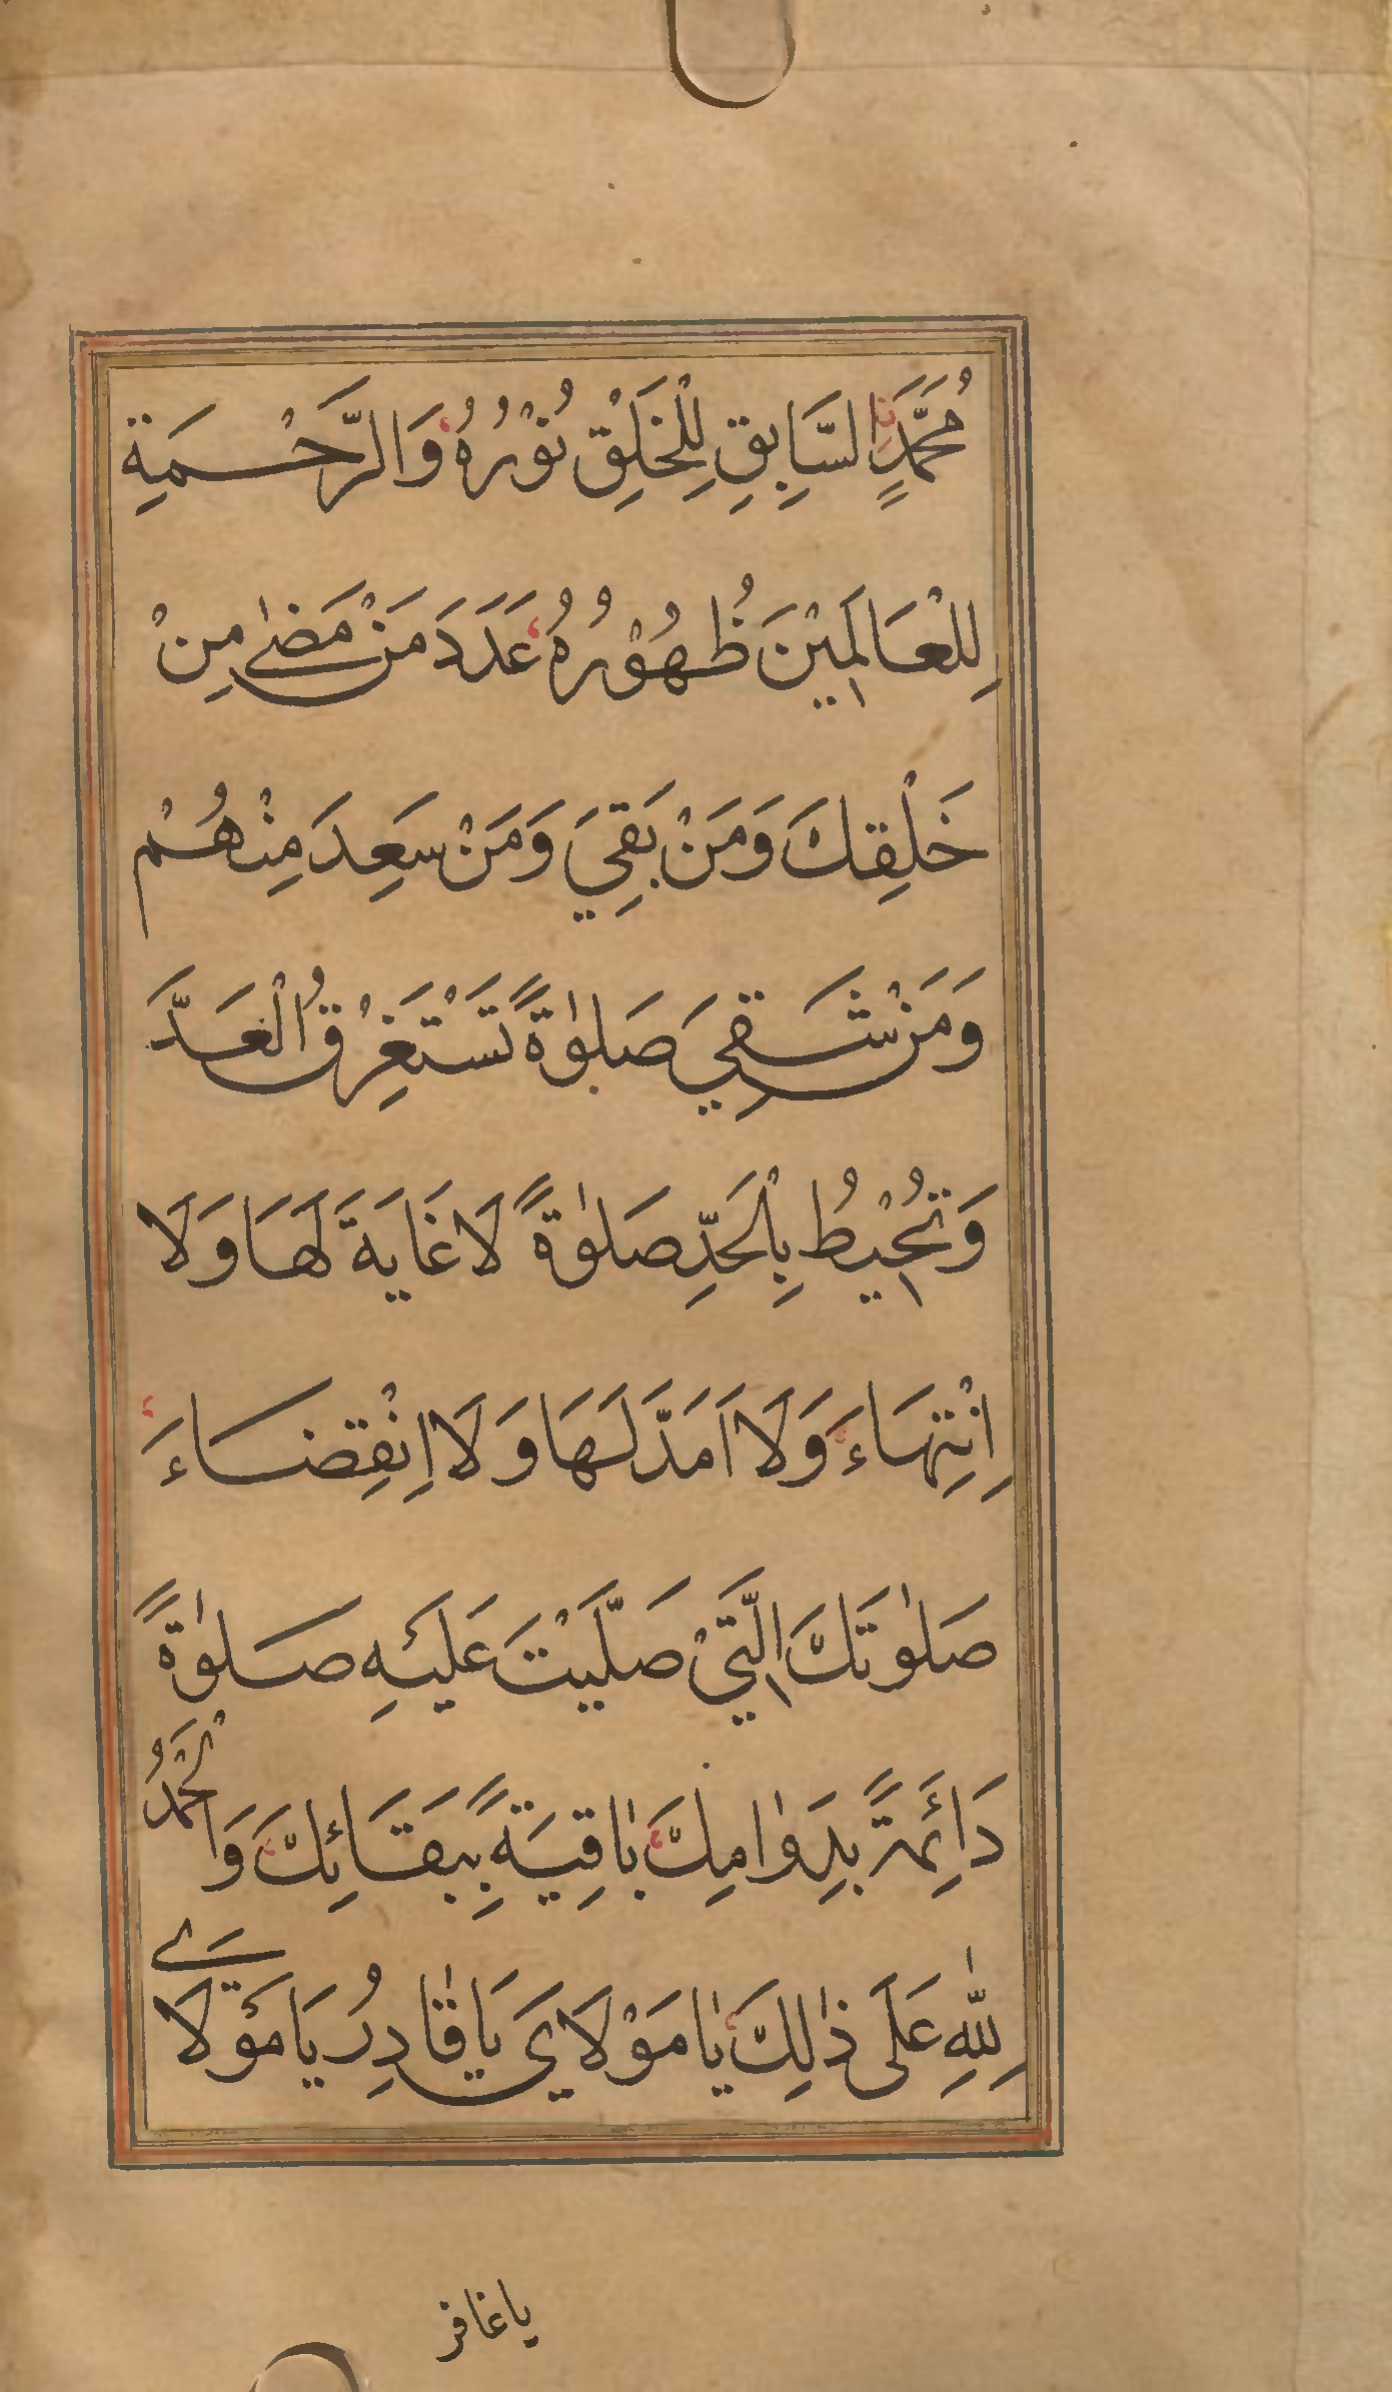 مُحَمَّدٍ السَّابِقِ لِلْخَلْقِ نُوْرُهُ وَالرَّحْمَةِ
لِلْعَالَمِيْنَ ظُهُوْرُهُ عَدَدَ مَنْ مَضٰى مِنْ
خَلْقِكَ وَمَنْ بَقِيَ وَمَنْ سَعِدَ مِنْهُمْ
وَمَنْ شَقِيَ صَلٰوةً تَسْتَغْرِقُ الْعَدَّ
وَتُحِيْطُ بِالْحَدِّ صَلٰوةً لَا غَايَةَ لَهَا وَلَا
اِنْتِهَاءَ وَلَا اَمَدَ لَهَا وَلَا اِنْقِضَاءَ
صَلٰوتَكَ الَّتِيْ صَلَّيْتَ عَلَيْهِ صَلٰوةً
دَائِمَةً بِدَوٰامِكَ بٰاقِيَةً بِبَقَائِكَ وَالْحَمْدُ
لِلّٰهِ عَلَى ذٰلِكَ يٰا مَوْلَايَ يَا قٰادِرُ يَا مَوْلَايَ
يا غافر